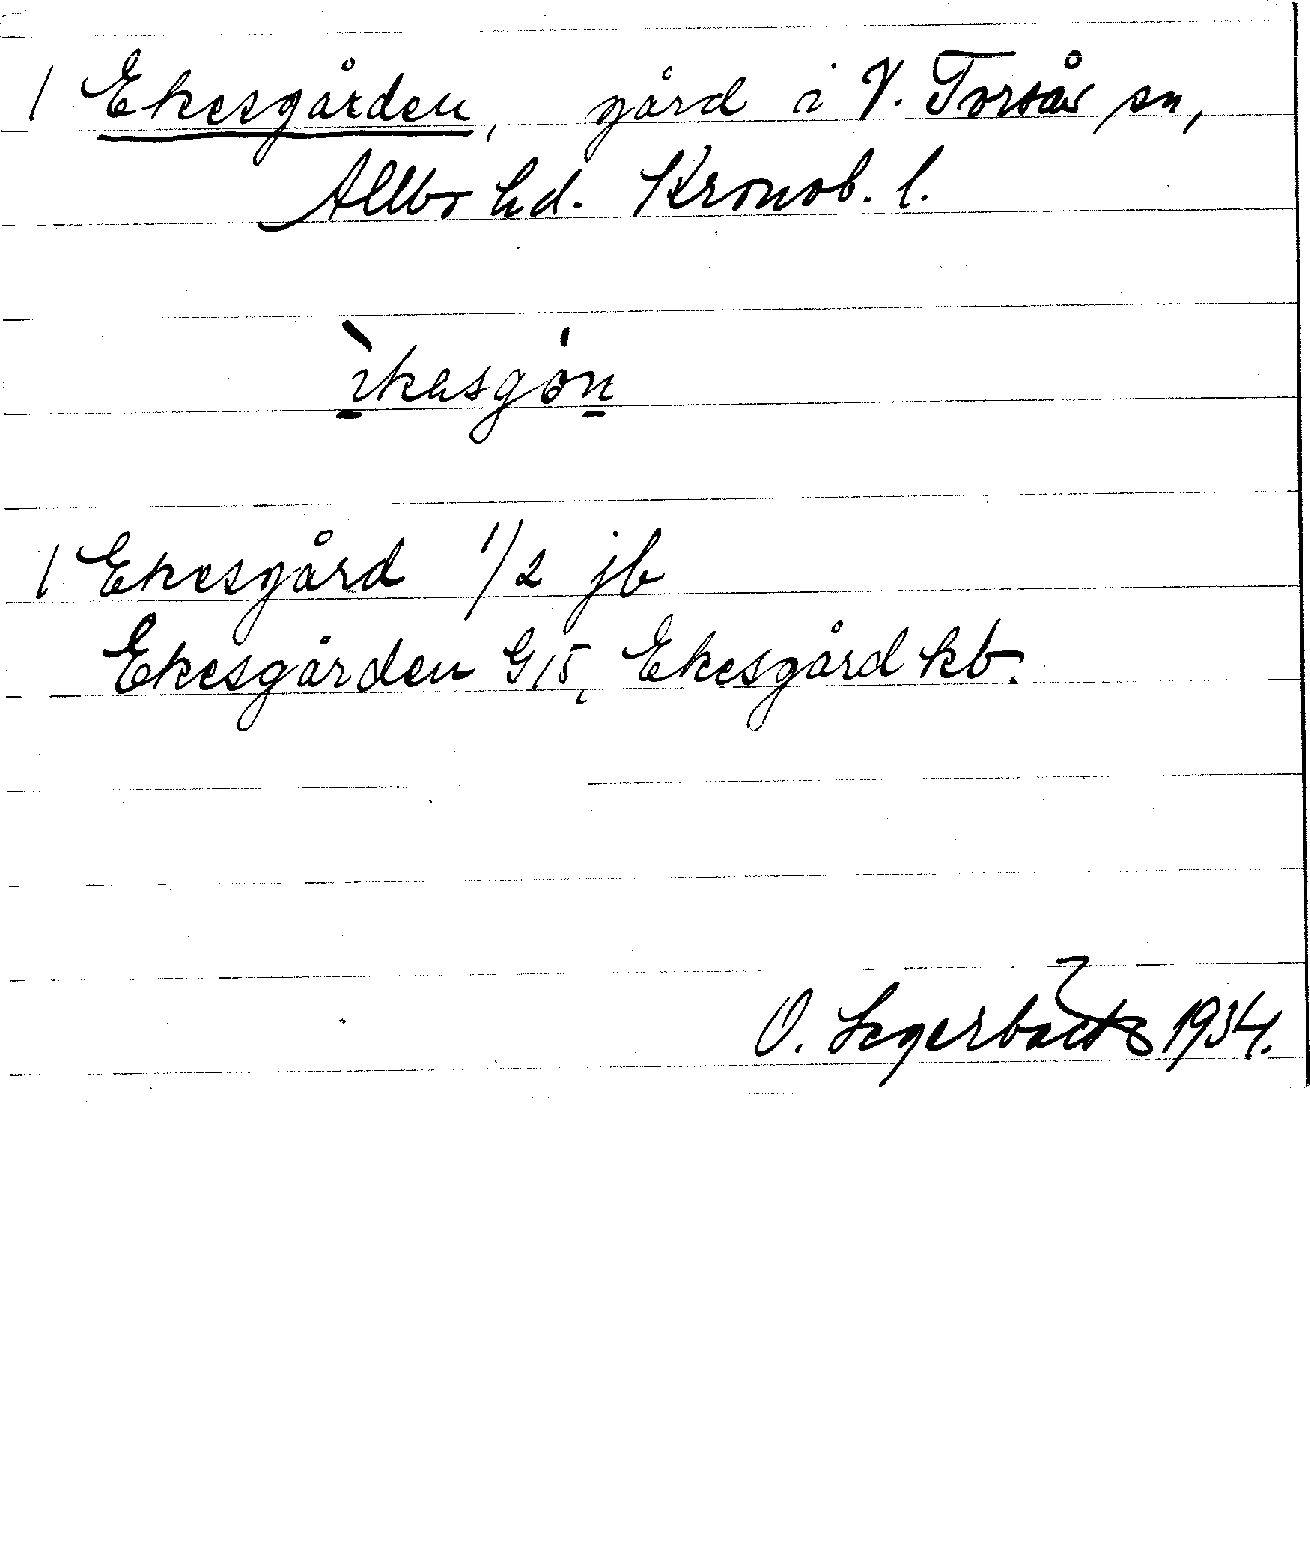 / Ekesgården, gård i V. Torsås sn,
Allbo hd. Kronob. l.
ìkasgón
/ Ekesgård 1/2 jb
Ekesgården G15, Ekesgård kb.
O. 1934.